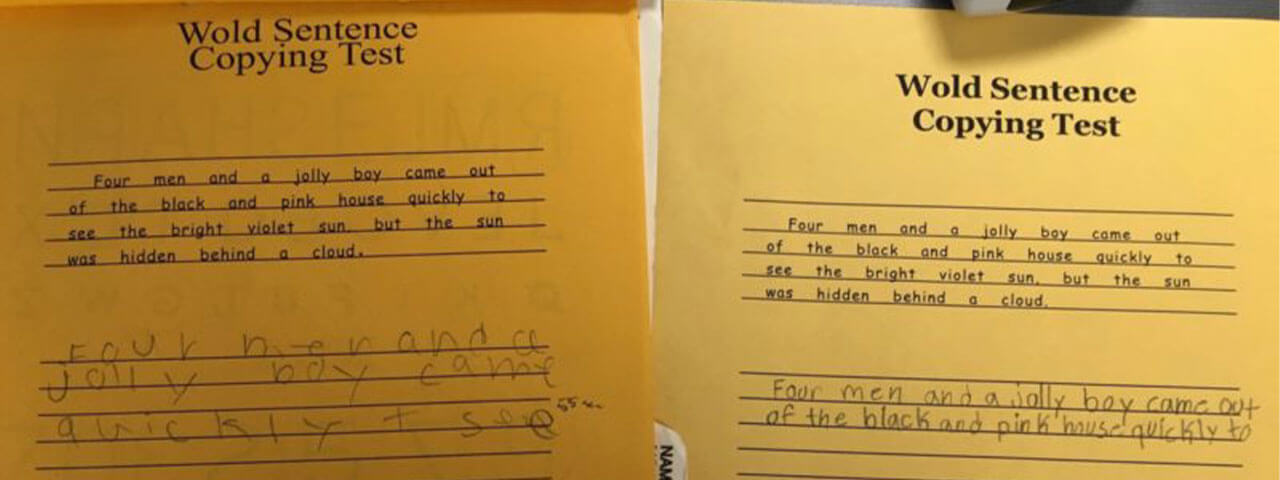 Wold Sentence
Copying Test
Four men and a jolly boy came out
of the black and pink house quickly to
see the bright violet sun, but the sun
was hidden behind a cloud.
Four men and a
jolly boy came
quickly t see
Wold Sentence
Copying Test
Four men and a jolly boy came out
of the black and pink house quickly to
see the bright violet sun, but the sun
was hidden behind a cloud.
Four men and a jolly boy came out
of the black and pink house quickly to
NAM